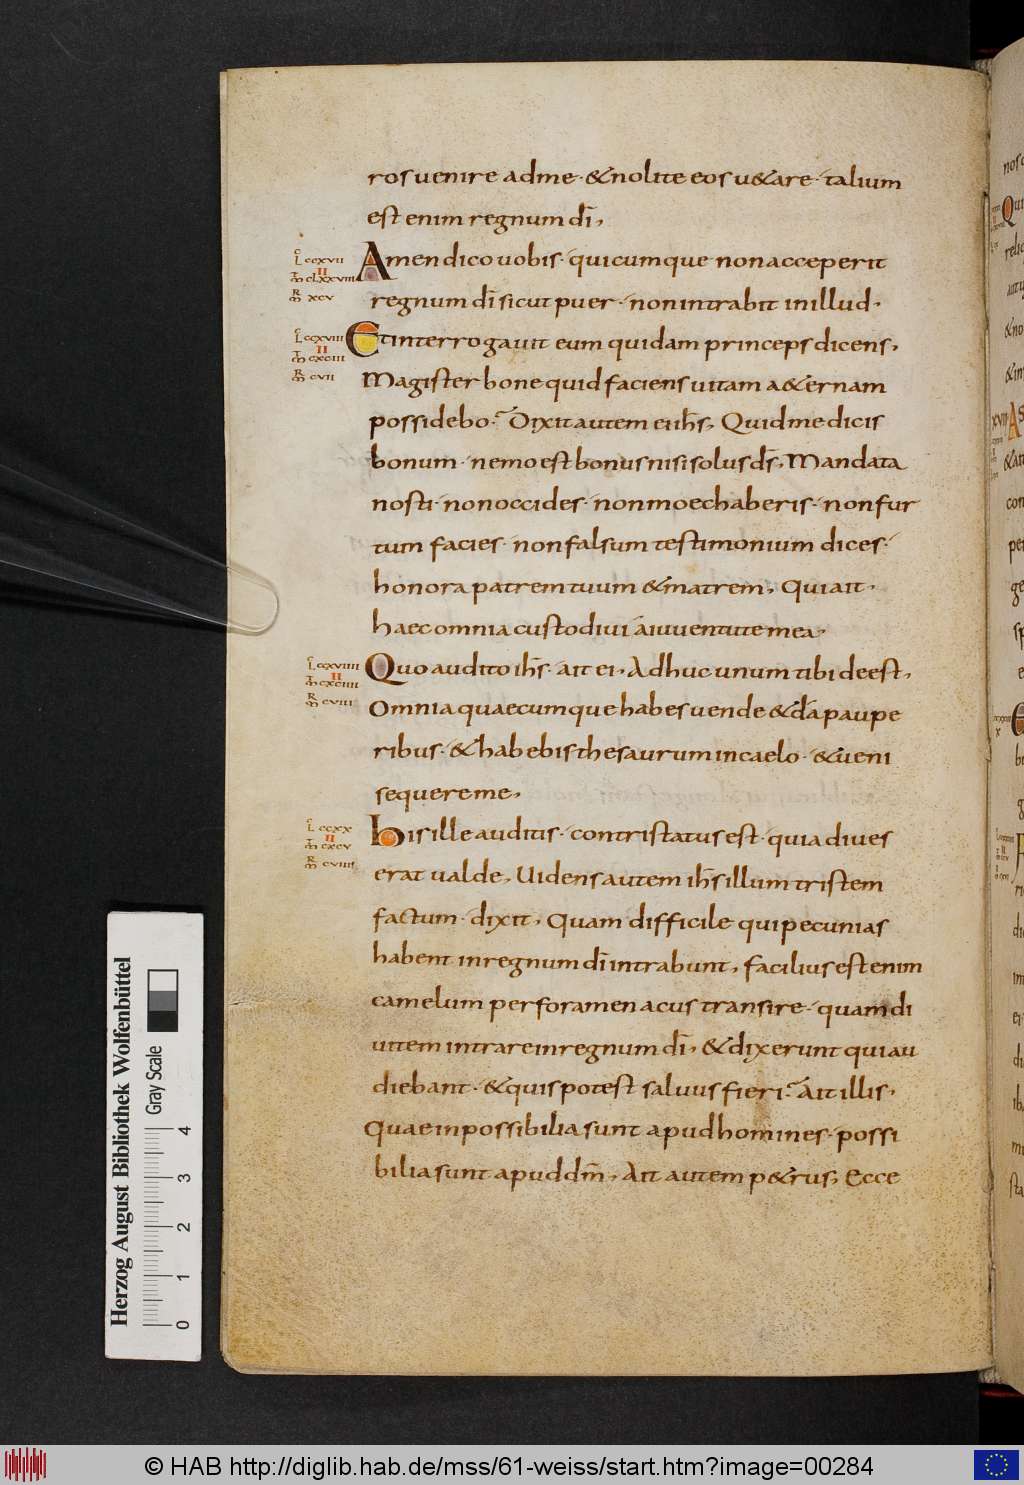 ros uenire ad me · & nolite eos u&are · talium
est enim regnum dī,
L ccxvii
II
m̄ clxxviiii
R
m̄ xcv
Amen dico uobis · quicumque non acceperit
regnum dī sicut puer · non intrabit in illud ·
L ccxviii
II
m̄ cxciii
R
m̄ cvii
Et interrogauit eum quidam princeps dicens,
Magister bone quid faciens uitam a&ernam
possidebo? Dixit autem ei ih̄s, Quid me dicis
bonum · nemo est bonus nisi solus d̄s, Mandata
nosti · non occides · non moechaberis · non fur
tum facies · non falsum testimonium dices ·
honora patrem tuum & matrem, Qui ait ·
Haec omnia custodiui a iuuentute mea,
L ccxviiii
II
m̄ cxciiii
R
m̄ cviii
Quo audito ih̄s · ait ei, Adhuc unum tibi deest,
Omnia quaecumque habes uende & da paupe
ribus · & habebis thesaurum in caelo · & ueni
sequere me,
L ccxx
II
m̄ cxcv
R
m̄ cviiii
His ille auditis · contristatus est · quia diues
erat ualde, Uidens autem ih̄s illum tristem
factum · dixit, Quam difficile qui pecunias
habent in regnum dī intrabunt, facilius est enim
camelum per foramen acus transire · quam di
uitem intrare in regnum dī, & dixerunt qui au
diebant · & quis potest saluus fieri? Ait illis,
Quae inpossibilia sunt apud homines · possi
bilia sunt apud dm̄, Ait autem p&rus, Ecce
Herzog August Bibliothek Wolfenbüttel
Gray Scale
0 1 2 3 4
© HAB http://diglib.hab.de/mss/61-weiss/start.htm?image=00284